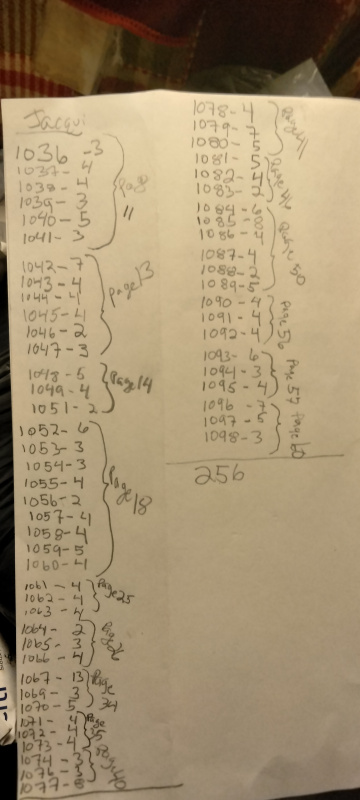 Jacqui
1036 - 3
1037 - 4
1038 - 4
1039 - 3
1040 - 5
1041 - 3
Page 11
1042 - 7
1043 - 4
1044 - 4
1045 - 4
1046 - 2
1047 - 3
Page 13
1048 - 5
1049 - 4
1051 - 2
Page 14
1052 - 6
1053 - 3
1054 - 3
1055 - 4
1056 - 2
1057 - 4
1058 - 4
1059 - 5
1060 - 4
Page 18
1061 - 4
1062 - 4
1063 - 4
Page 25
1064 - 2
1065 - 3
1066 - 4
Page 26
1067 - 13
1069 - 3
1070 - 5
Page 34
1071 - 4
1072 - 4
1073 - 4
Page 35
1074 - 3
1076 - 3
1077 - 8
Page 40
1078 - 4
1079 - 7
1080 - 5
Page 41
1081 - 5
1082 - 4
1083 - 2
Page 46
1084 - 6
1085 -
1086 - 4
1087 - 4
1088 - 2
1089 - 5
50
1090 - 4
1091 - 4
1092 - 4
Page 56
1093 - 6
1094 - 3
1095 - 4
Page 57
1096 - 7
1097 - 5
1098 - 3
Page 60
256